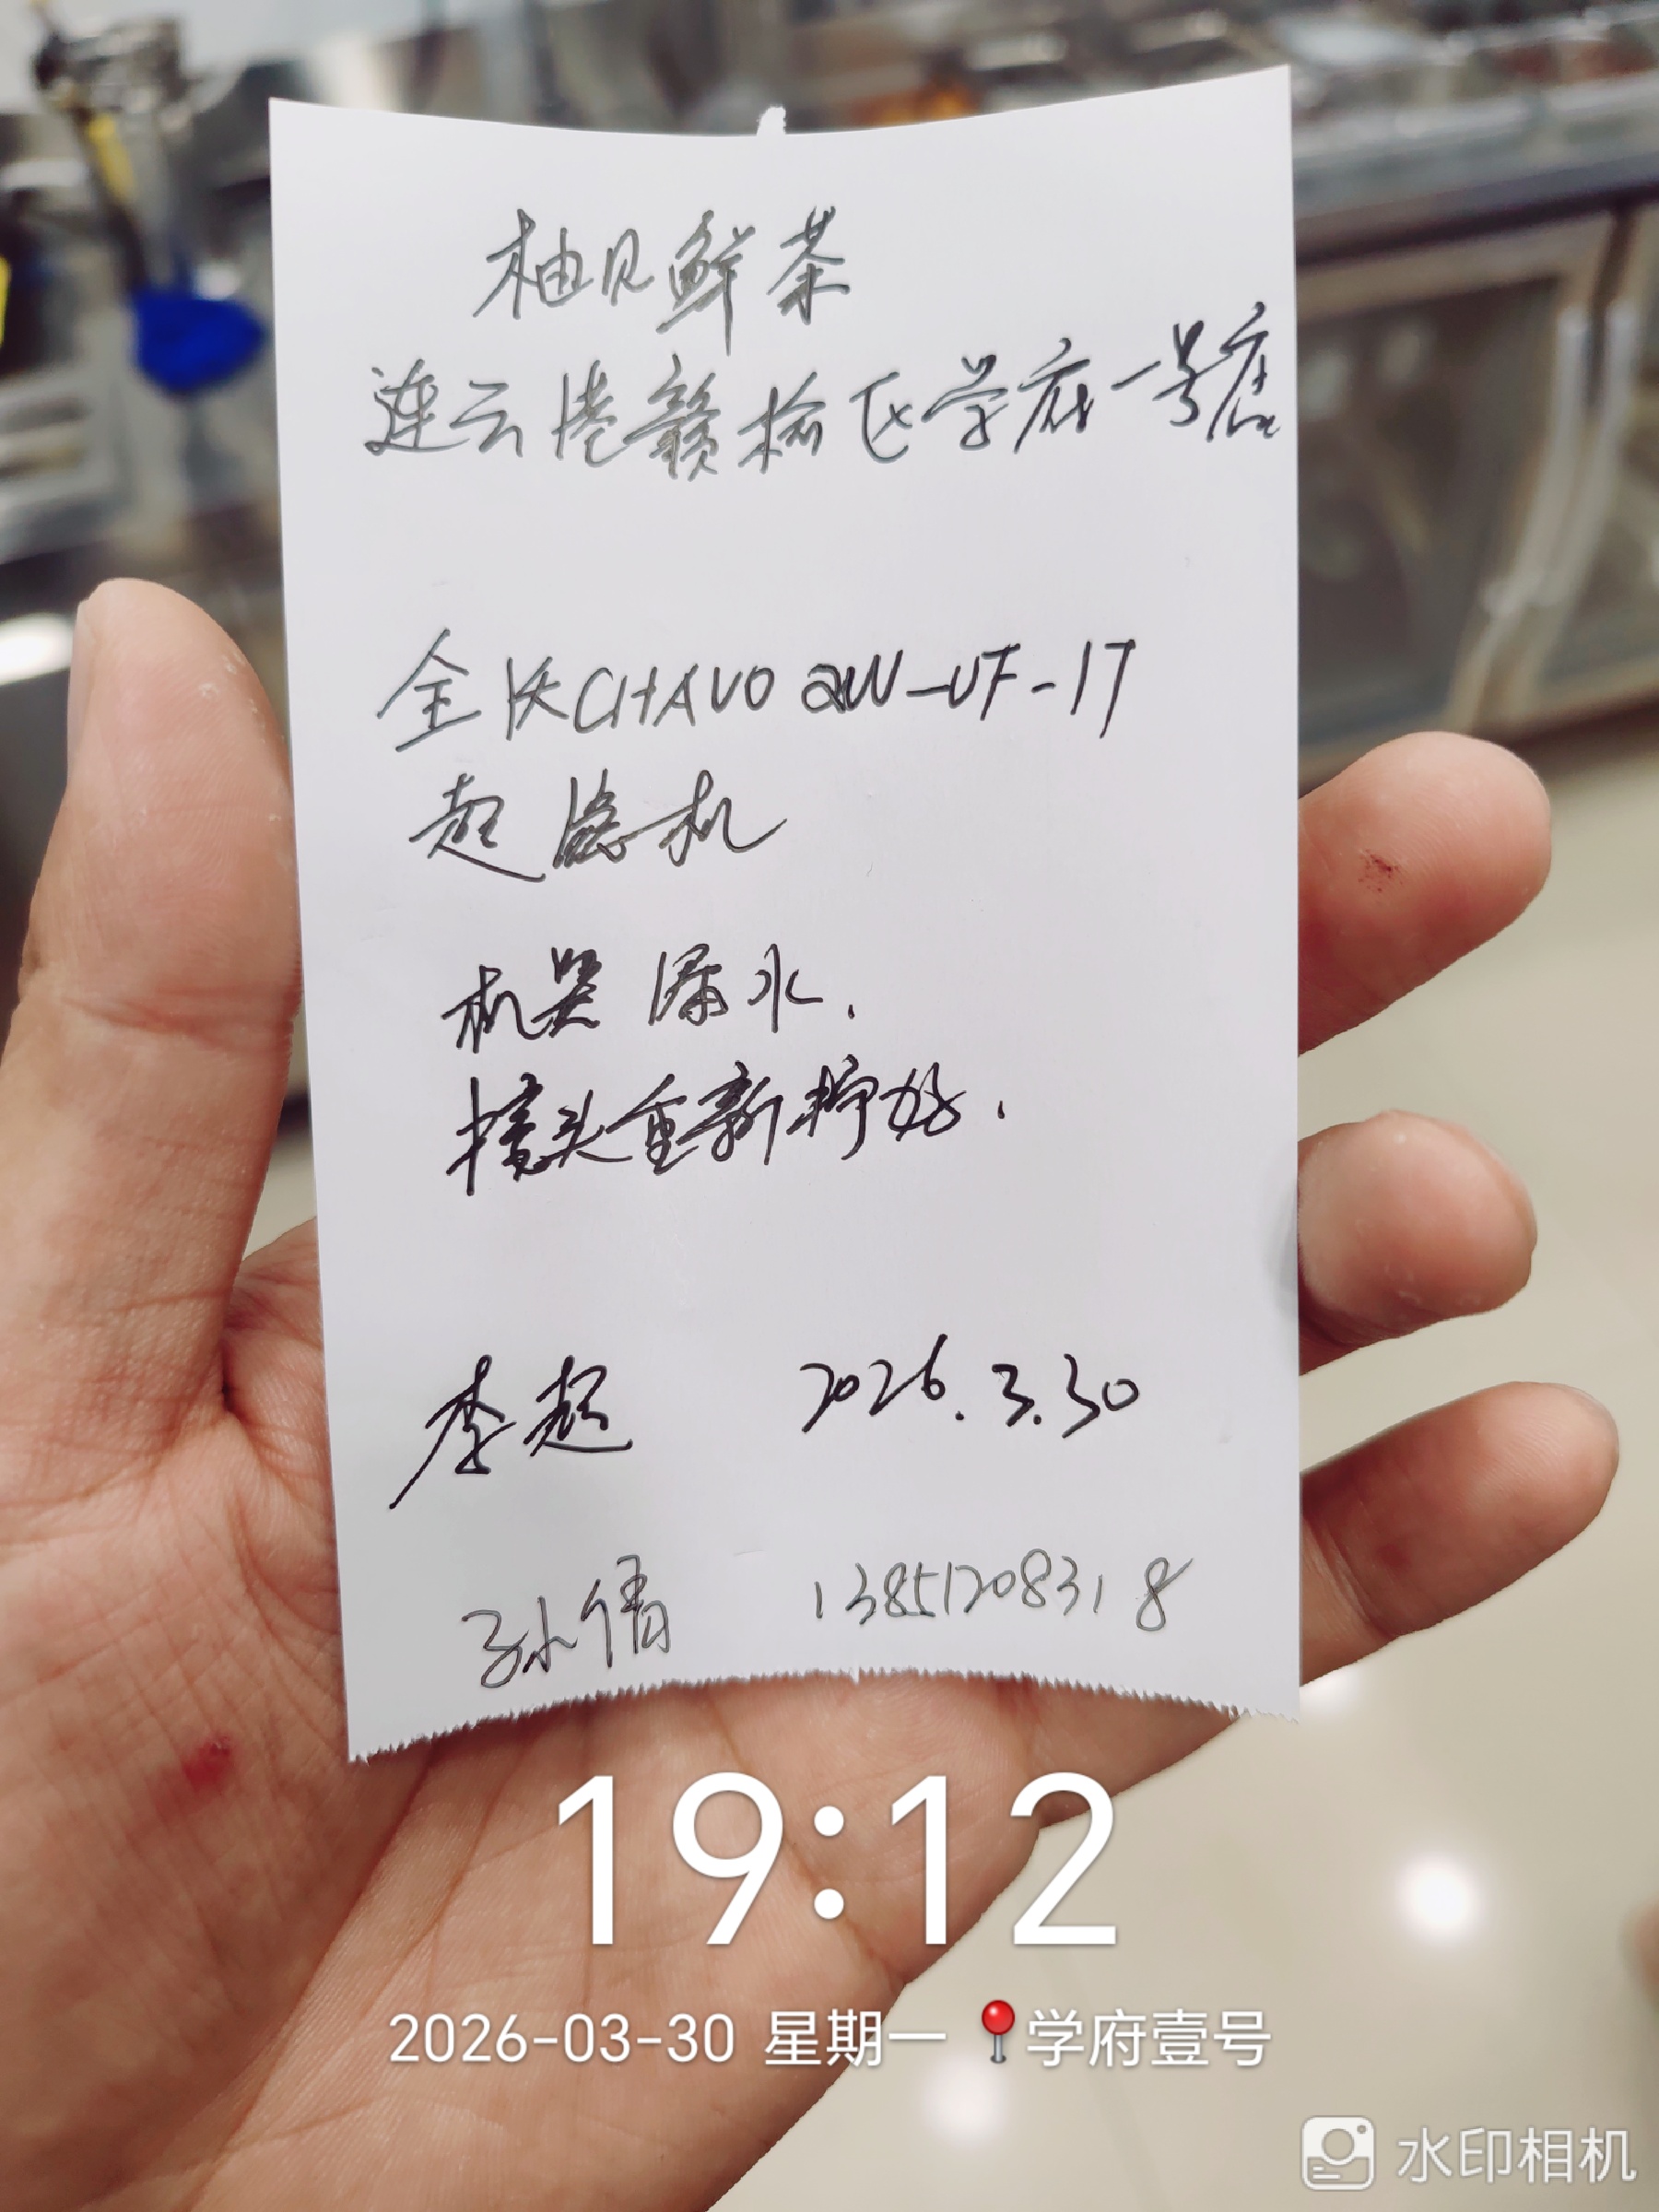 柚见鲜茶
连云港赣榆区学府一号店
全沃CHAVO QW-UF-17
超滤机
机器漏水.
接头重新拧好.
李超 2026.3.30
孙倩 13851208318
19:12
2026-03-30 星期一 学府壹号
水印相机